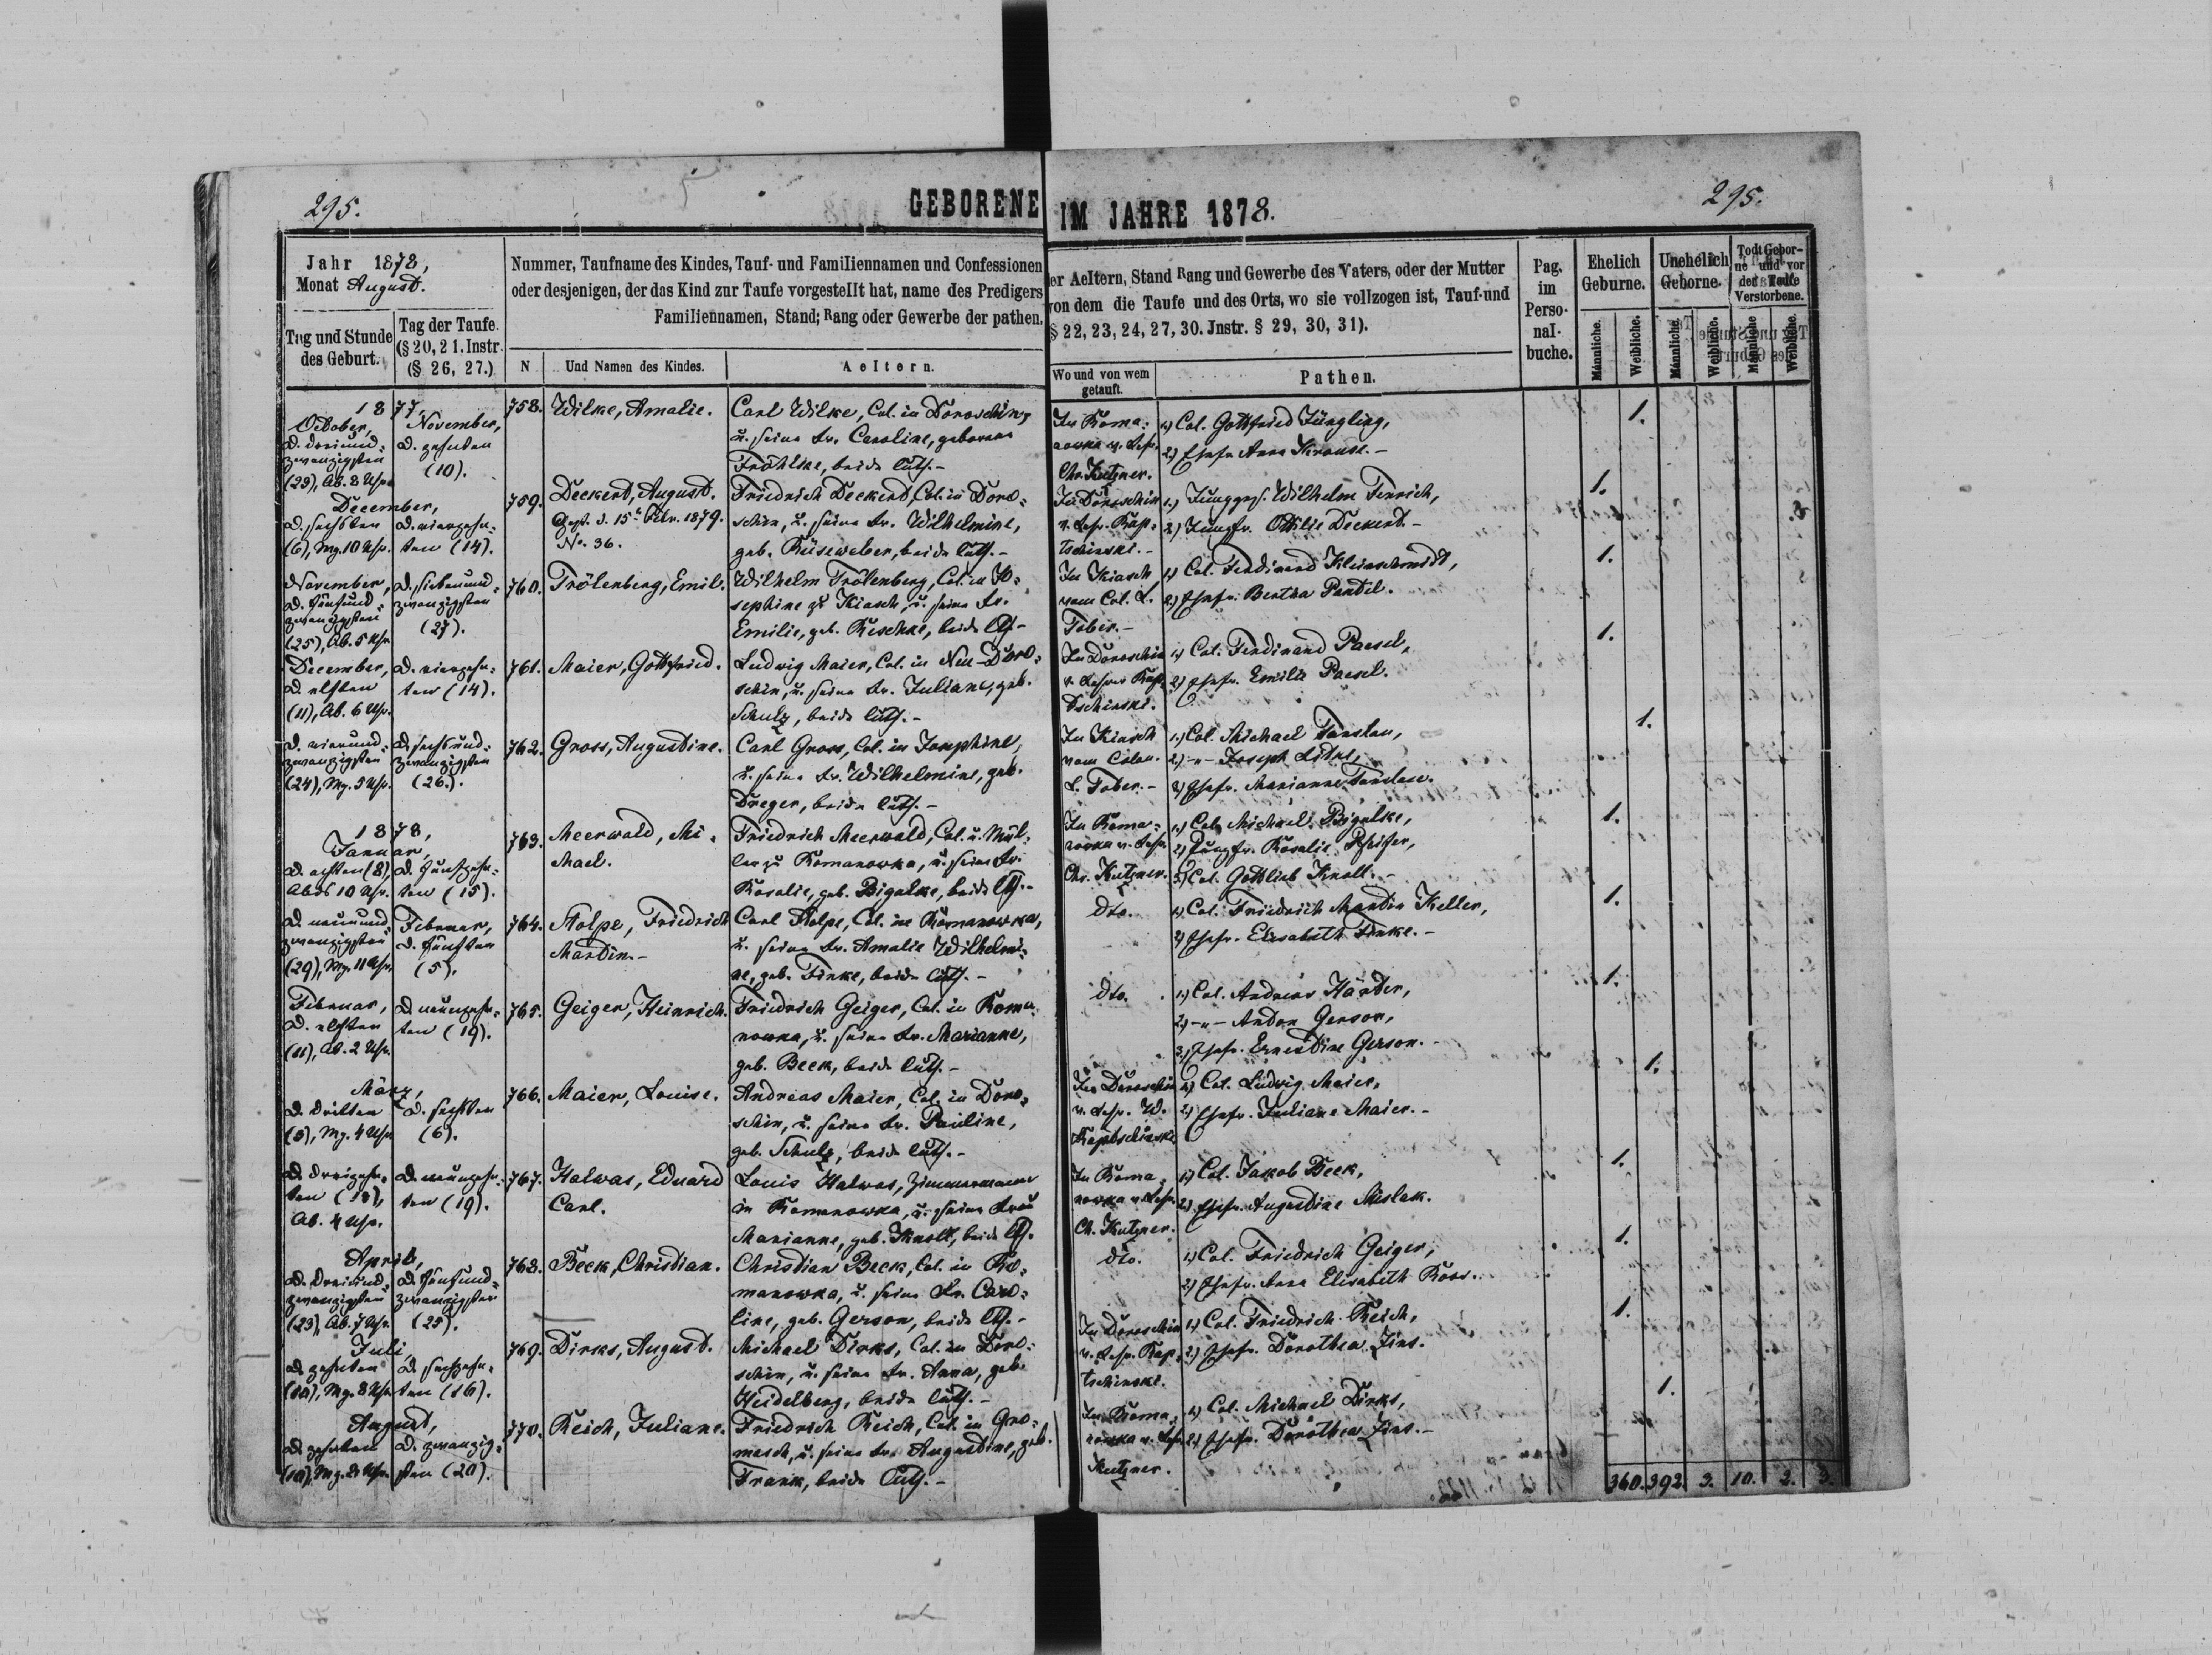 295.
GEBORENE IM JAHRE 1878.
295.
Jahr 1878,
Monat August.
Tag und Stunde des Geburt.
Tag der Taufe. (§ 20, 21. Instr. (§ 26, 27.)
Nummer, Taufname des Kindes, Tauf- und Familiennamen und Confessionen
oder desjenigen, der das Kind zur Taufe vorgestellt hat, name des Predigers
Familiennamen, Stand; Rang oder Gewerbe der pathen,
N
Und Namen des Kindes.
Aeltern.
er Aeltern, Stand Rang und Gewerbe des Vaters, oder der Mutter
von dem die Taufe und des Orts, wo sie vollzogen ist, Tauf-und
§ 22, 23, 24, 27, 30. Jnstr. § 29, 30, 31).
Wo und von wem getauft.
Pathen.
Pag. im Perso- nal- buche.
Ehelich Geburne.
Unehelich Geborne.
Todt Gebor- ne und vor der Taufe Verstorbene.
Männliche.
Weibliche.
Männliche.
Weibliche.
Männliche
Weibliche.
1877,
October,
d. dreiund-
zwanzigsten
(23), Ab. 8 Uhr.
November,
d. zehnten
(10).
758.
Wilke, Amalie.
Carl Wilke, Col. in Doroschin,
u. seine Fr. Caroline, geborene
Fröhlke, beide luth.-
In Roma-
nowka v. Lehr.
Chr. Kutzner.
1.) Col. Gottfried Jüngling,
2.) Ehefr. Anna Krause.-
1.
December,
d. sechsten
(6), Mg. 10 Uhr.
d. vierzehn-
ten (14).
759.
Deckert, August.
Gest. d. 15t Febr. 1879.
No. 36.
Friedrich Deckert, Col. in Doro-
schin, u. seine Fr. Wilhelmine,
geb. Rüseweber, beide luth.-
In Doroschin
v. Lehr. Kap-
tschinski.-
1.) Junggs. Wilhelm Fenrich,
2.) Jungfr. Ottilie Deckert.-
1.
November,
d. fünfund-
zwanzigsten
(25), Ab. 5 Uhr.
d. siebenund-
zwanzigsten
(27).
760.
Trölenberg, Emil.
Wilhelm Trölenberg, Col. in Jo-
sephine zu Kiasch, u. seine Fr.
Emilie, geb. Reschke, beide lth.-
In Kiasch
vom Col. L.
Tober.-
1.) Col. Ferdinand Kleinschmidt,
2.) Ehefr. Bertha Pandel.
1.
December,
d. elften
(11), Ab. 6 Uhr.
d. vierzehn-
ten (14).
761.
Maier, Gottfried.
Ludwig Maier, Col. in Neu-Doro-
schin, u. seine Fr. Juliane, geb.
Schulz, beide luth.-
In Doroschin
v. Lehrer Kap-
tschinski.
1.) Col. Ferdinand Paesel,
2.) Ehefr. Emilie Paesel.
1.
d. vierund-
zwanzigsten
(24), Mg. 5 Uhr.
d. sechsund-
zwanzigsten
(26.).
762.
Gross, Augustine.
Carl Gross, Col. in Josephine,
u. seine Fr. Wilhelmine, geb.
Dreger, beide luth.-
In Kiasch
vom Colon.
L. Tober.-
1.) Col. Michael
2.) -"- Joseph
3.) Ehefr. Marianne
1.
1878,
Januar,
d. achten (8),
Abds 10 Uhr.
d. fünfzehn-
ten (15).
763.
Meerwald, Mi-
chael.
Friedrich Meerwald, Col. u. Mül-
ler zu Romanowka, u. seine Fr.
Rosalie, geb. Bigalke, beide lth.-
In Roma-
nowka v. Lehr.
Chr. Kutzner.
1.) Col. Michael Bigalke,
2.) Jungfr. Rosalie Pfeifer,
3.) Col. Gottlieb Knoll.-
1.
d. neunund-
zwanzigsten
(29), Mg. 11 Uhr.
Februar,
d. fünften
(5).
764.
Stolpe, Friedrich
Martin.-
Carl Stolpe, Col. in Romanowka,
u. seine Fr. Amalie Wilhelmi-
ne, geb. Finke, beide luth.-
dto.
1.) Col. Friedrich Martin Keller,
2.) Ehefr. Elisabeth Finke.-
1.
Februar,
d. elften
(11), Ab. 2 Uhr.
d. neunzehn-
ten (19).
765.
Geiger, Heinrich.
Friedrich Geiger, Col. in Roma-
nowka, u. seine Fr. Marianne,
geb. Beck, beide luth.-
dto.
1.) Col. Andreas Härter,
2.) -"- Anton Gerson,
3.) Ehefr. Ernestine Gerson.-
1.
März,
d. dritten
(3), Mg. 4 Uhr
d. sechsten
(6).
766.
Maier, Louise.
Andreas Maier, Col. in Doro-
schin, u. seine Fr. Pauline,
geb. Schulz, beide luth.-
In Doroschin
v. Lehr. W.
Kaptschinski
1.) Col. Ludwig Maier,
2.) Ehefr. Juliane Maier.-
1.
d. dreizehn-
ten (13),
Ab. 4 Uhr.
d. neunzehn-
ten (19).
767.
Halwas, Eduard
Carl.
Louis Halwas, Zimmermann
in Romanowka, u. seine Frau
Marianne, geb. Knoll, beide lth.
In Roma-
nowka v. Lehr.
Ch. Kutzner.
1.) Col. Jakob Beek,
2.) Ehefr. Augustine
1.
April,
d. dreiund-
zwanzigsten
(23), Ab. 7 Uhr.
d. fünfund-
zwanzigsten
(25).
768.
Beck, Christian.
Christian Beck, Col. in Ro-
manowka, u. seine Fr. Caro-
line, geb. Gerson, beide lth.-
dto.
1.) Col. Friedrich Geiger,
2.) Ehefr. Anna Elisabeth Roos.
1.
Juli,
d. zehnten
(10), Mg. 8 Uhr
d. sechzehn-
ten (16).
769.
Dirks, August.
Michael Dirks, Col. in Doro-
schin, u. seine Fr. Anna, geb.
Heidelberg, beide luth.-
In Doroschin
v. Lehr. Kap-
tschinski.
1.) Col. Friedrich Reich,
2.) Ehefr. Dorothea Zins.
1.
August,
d. zehnten
(10), Mg. 2 Uhr.
d. zwanzig-
sten (20).
770.
Reich, Juliane.
Friedrich Reich, Col. in Gro-
mesch, u. seine Fr. Augustine, geb.
Frank, beide luth.-
In Roma-
nowka v. Lehr.
Kutzner.
1.) Col. Michael Dirks,
2.) Ehefr. Dorothea Zins.-
1.
360. 392. 3. 10. 2. 3.